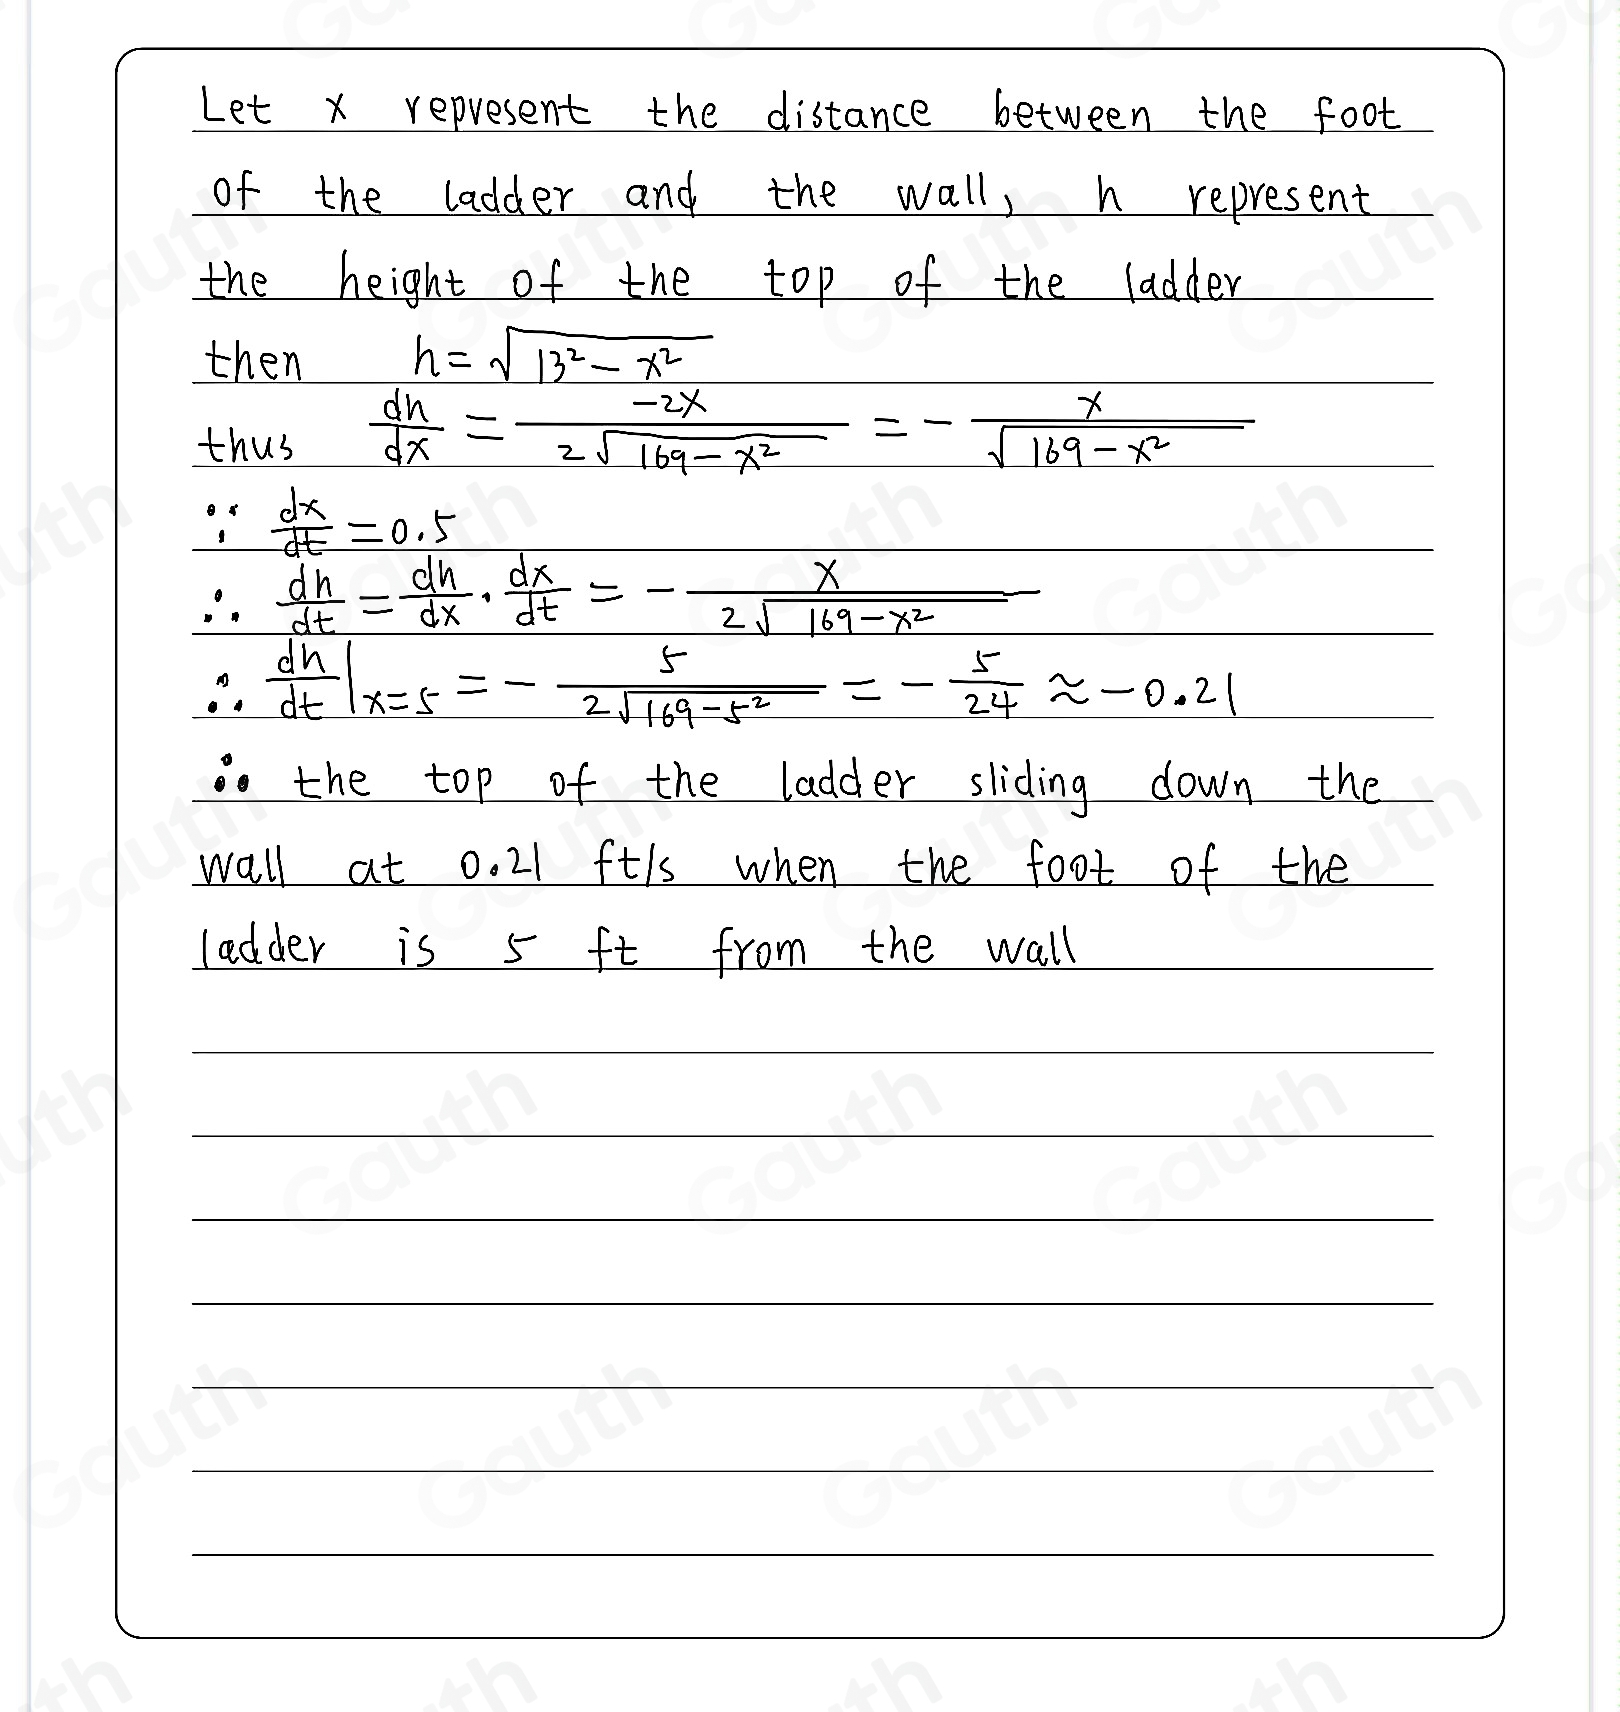 Let x represent the distance between the foot
of the ladder and the wall, h represent
the height of the top of the ladder
then h = √(13² - x²)
thus dh/dx = -2x/(2√(169-x²)) = - x/√(169-x²)
∵ dx/dt = 0.5
∴ dh/dt = dh/dx · dx/dt = - x/(2√(169-x²))
∴ dh/dt |x=5 = - 5/(2√(169-5²)) = - 5/24 ≈ -0.21
∴ the top of the ladder sliding down the
wall at 0.21 ft/s when the foot of the
ladder is 5 ft from the wall
Gauth